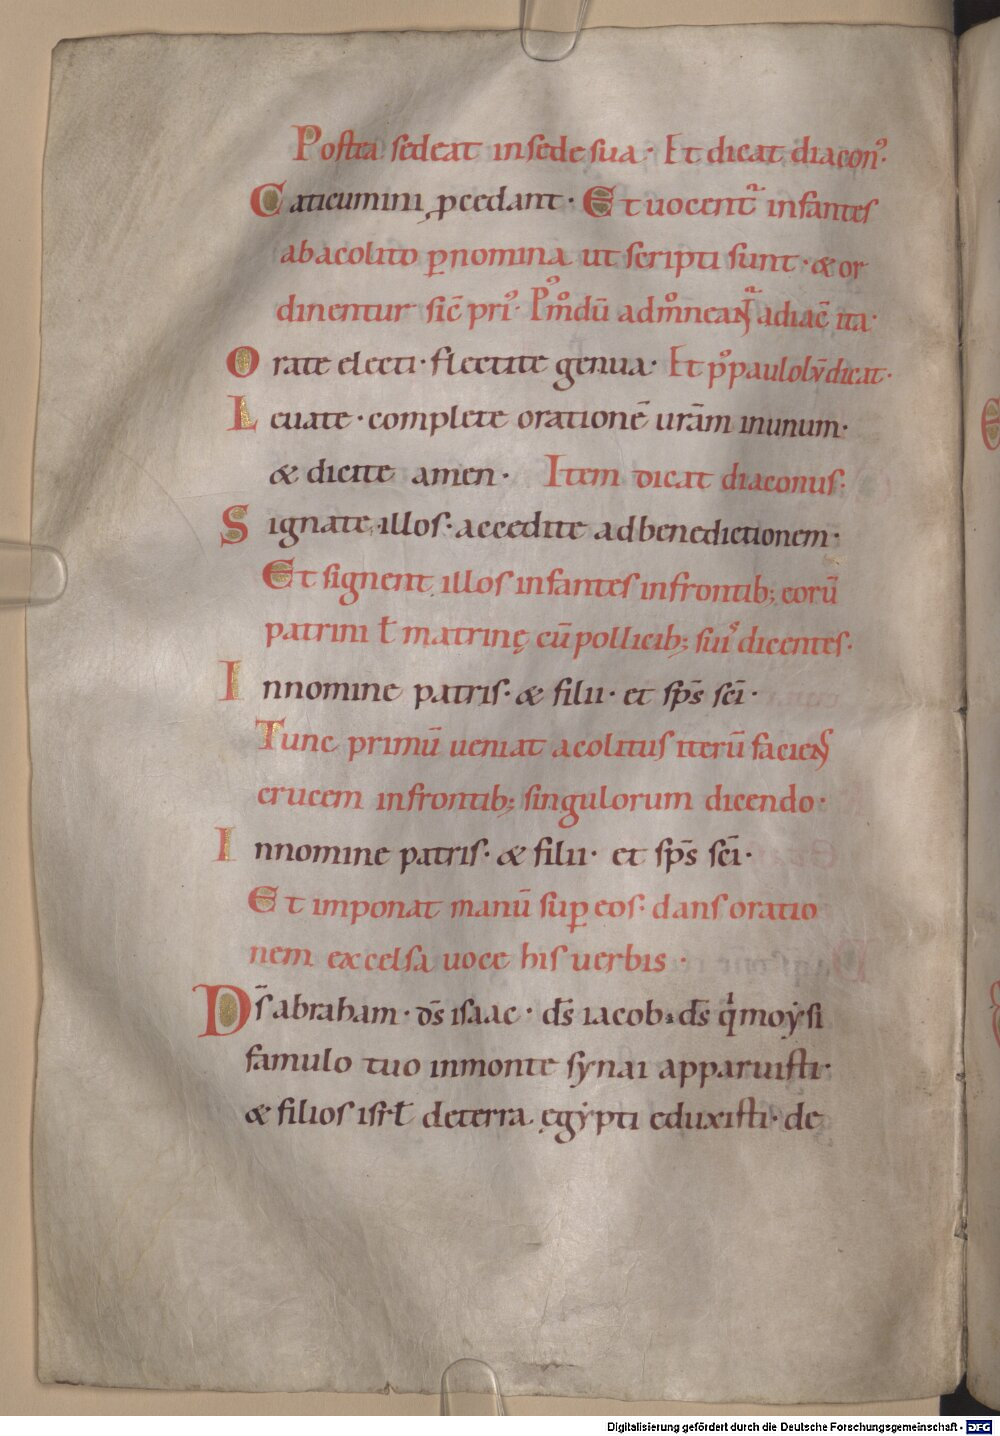 Postea sedeat in sede sua · Et dicat diaconꝰ·
Caticumini ꝓcedant · Et uocentᷣ infantes
ab acolito ꝑ nomina ut scripti sunt · & or
dinentur
Orate electi · flectite genua · Et
Leuate · complete orationē urām in unum·
& dicite amen · Item dicat diaconus·
Signate illos · accedite ad benedictionem ·
Et signent illos infantes in frontib; eorū
patrini ł matrinę cū pollicib; suiˢ dicentes·
In nomine patris · & filii · et sp̄s sc̄i ·
Tunc primū ueniat acolitus iterū faciens
crucem in frontib; singulorum dicendo ·
In nomine patris · & filii · et sp̄s sc̄i ·
Et imponat manū suꝑ eos · dans oratio
nem excelsa uoce his uerbis ·
Ds̄ abraham · ds̄ isaac · ds̄ iacob · ds̄ qͥ moẏsi
famulo tuo in monte synai apparuisti·
& filios isrł de terra ęgẏpti eduxisti · de
Digitalisierung gefördert durch die Deutsche Forschungsgemeinschaft - DFG